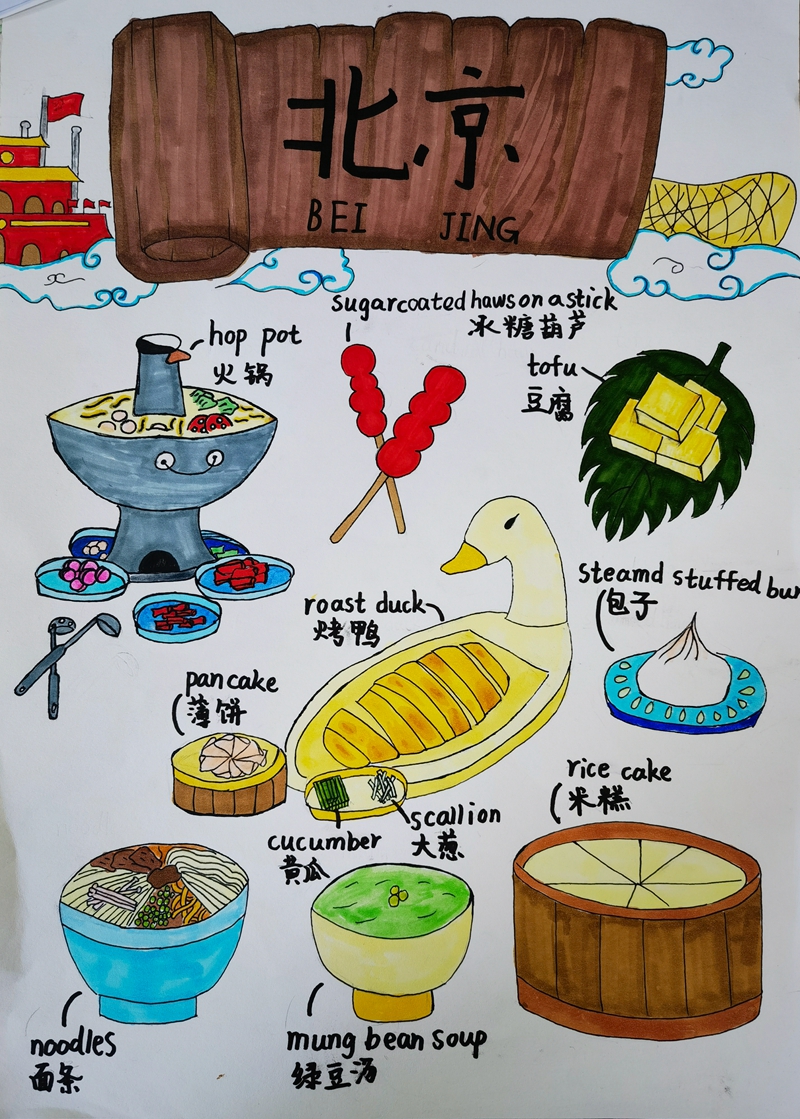 北京
BEI JING
sugarcoated haws on a stick
冰糖葫芦
hop pot
火锅
tofu
豆腐
steamd stuffed bun
包子
roast duck
烤鸭
pancake
薄饼
rice cake
米糕
scallion
大葱
cucumber
黄瓜
noodles
面条
mung bean soup
绿豆汤